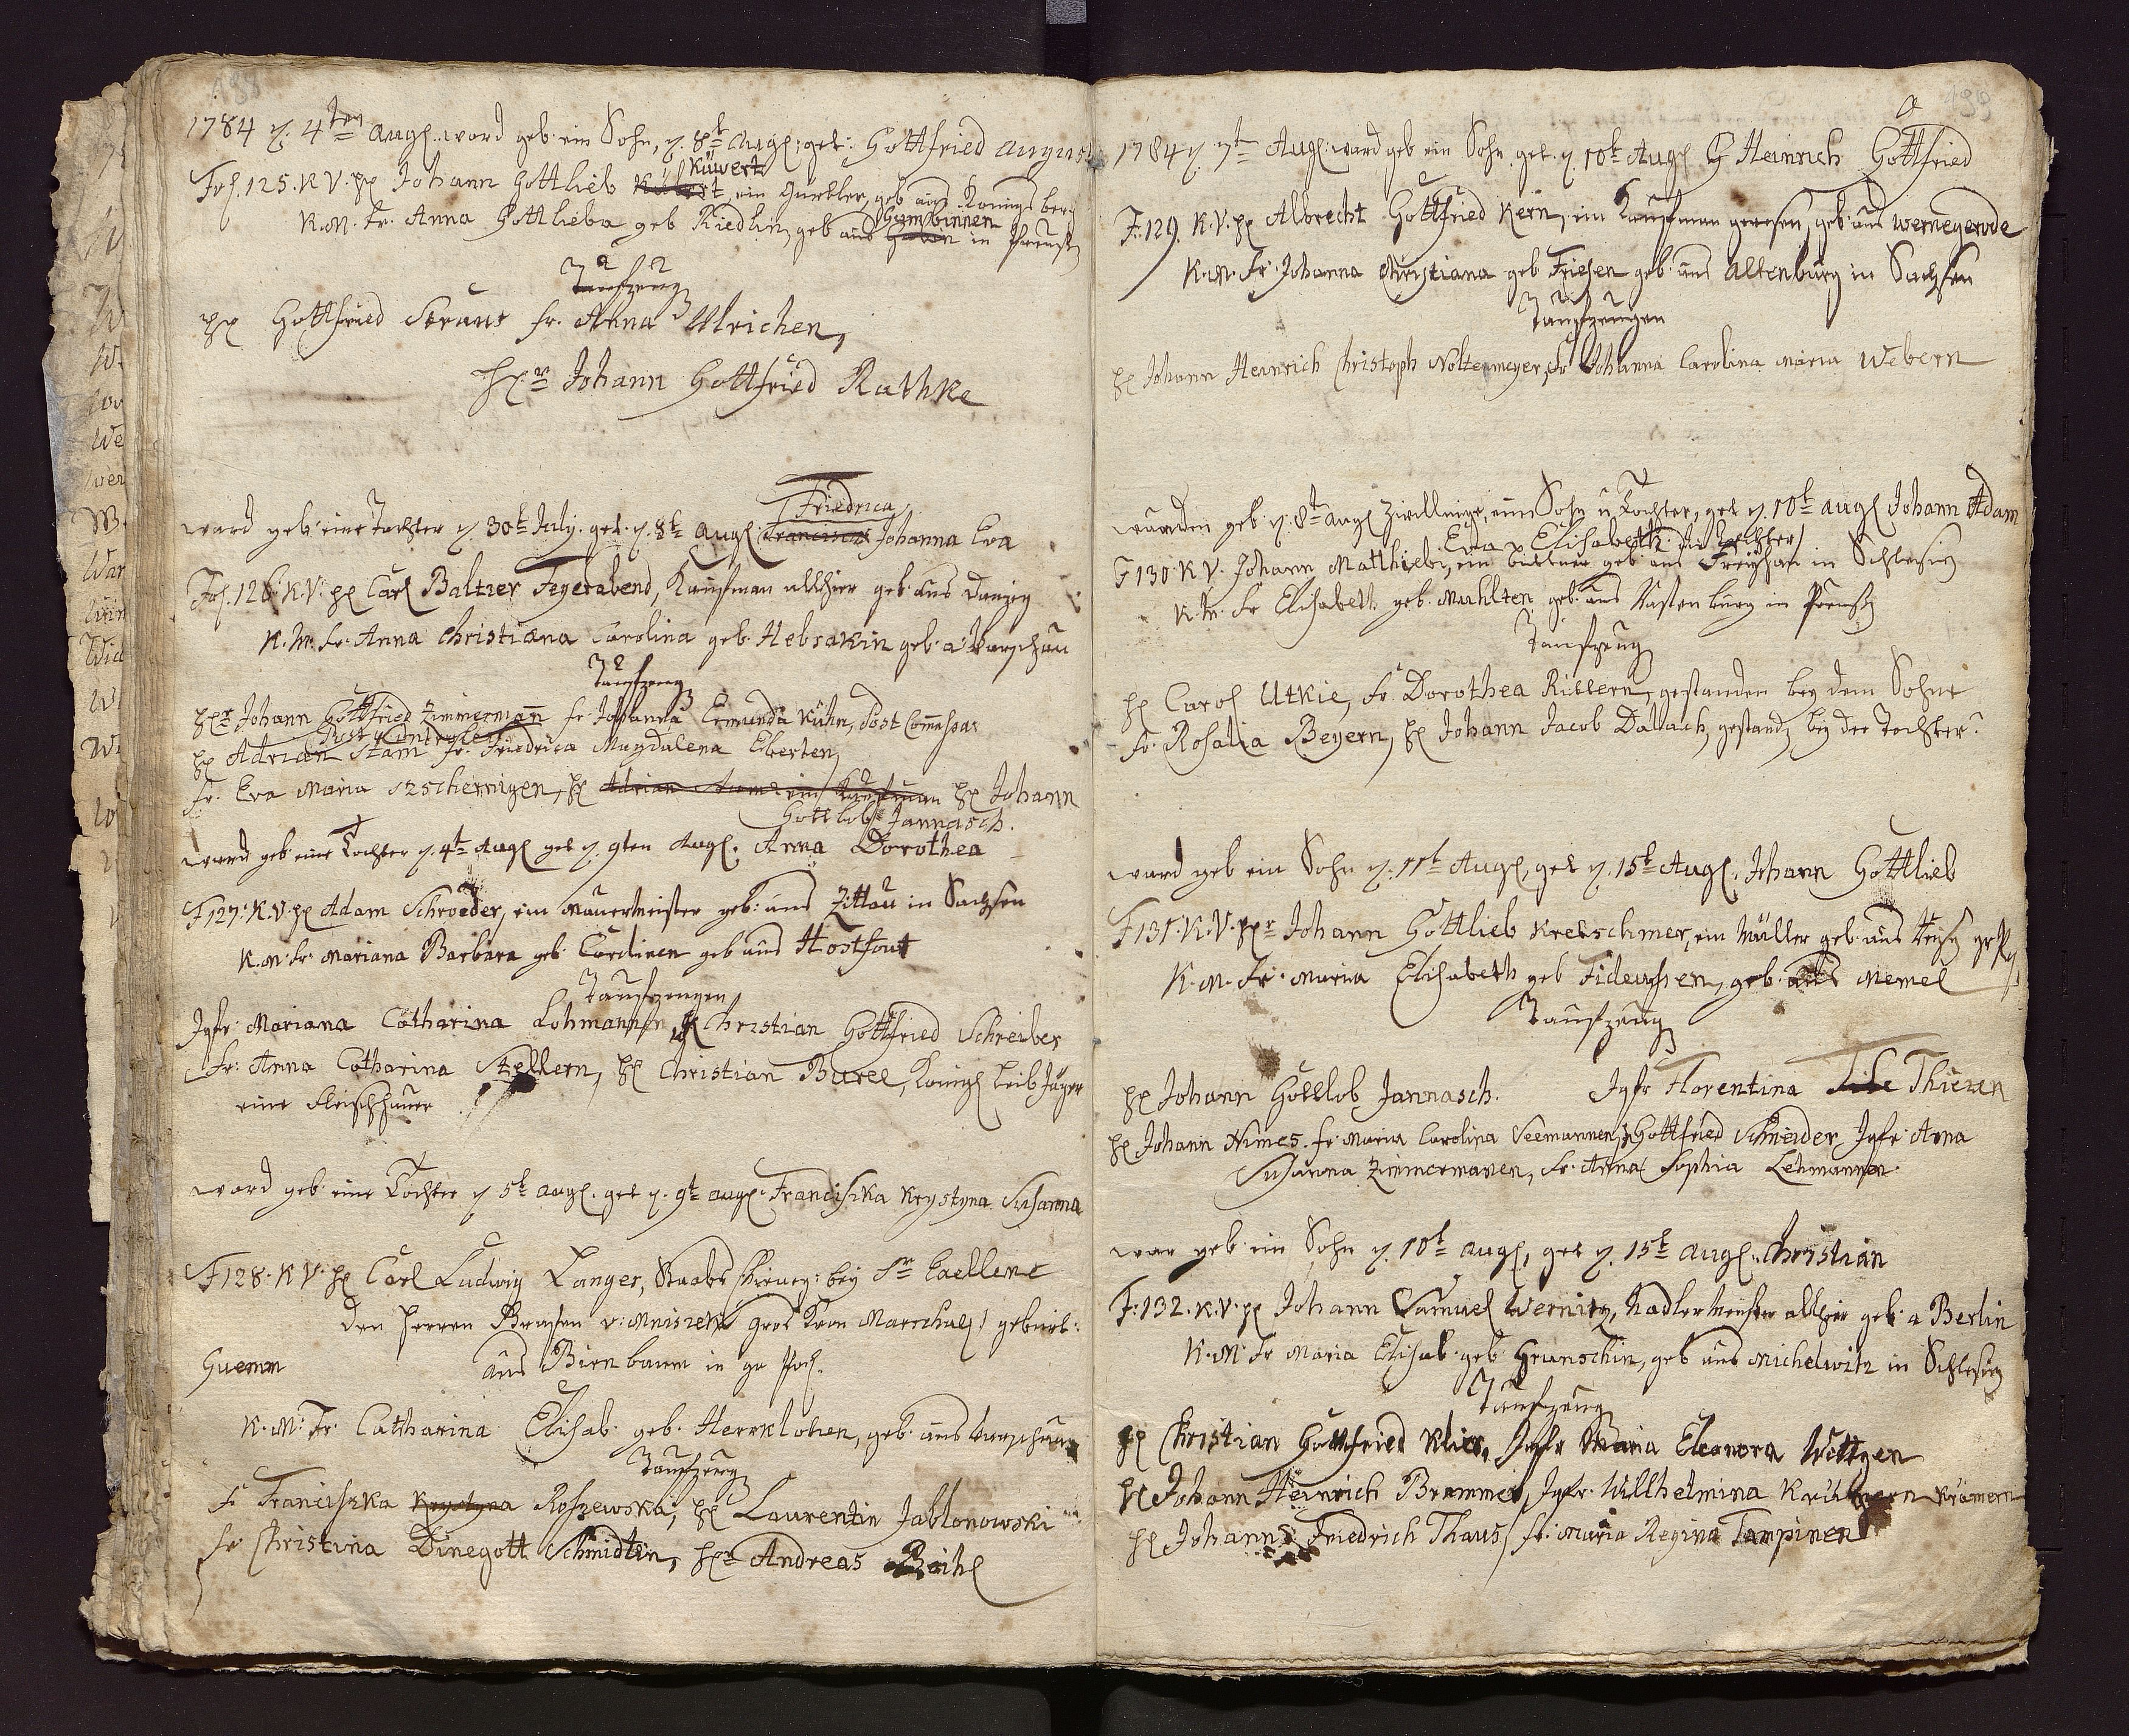 188
1784 d. 4ten Aug. ward geb. ein Sohn, d. 8t Aug. get: Gottfried August
Küwert
Fol. 125. K. V. H. Johann Gottlieb ein Gürtler, geb. aus Konigsberg
Gumbinnen
K. M. Fr. Anna Gottlieba geb Riedlin, geb aus in Preuss
Taufzeug
H Gottfried Straus fr. Anna Ulrichen,
Hr. Johann Gottfried Rathke
Friedrica
ward geb. eine Tochter d. 30t July. get. d. 8t Aug. Francisca Johanna Eva
Fol. 126. K. V. H Carl Baltzer Feyerabend, Kaufman allhier geb. aus Danzig
K. M. fr. Anna Christiana Carolina geb. Hebsakin geb. a. Warschau
Taufzeug
Hr. Johann Gottfried Zimmermann fr. Johanna Ermunda Kühn, Post Commissar
H Adrian Stam fr. Friedrica Magdalena Eberten
Fr. Eva Maria Szschernigen, H Adrian ein Kaufman H Johann
Gottlob Jannasch.
ward geb. eine Tochter d. 4t Aug get d. 9ten Aug. Anna Dorothea
F 127. K. V. H Adam Schroeder, ein Mauermeister geb. aus Zittau in Sachsen
K. M. fr. Mariana Barbara geb. Cordinen geb aus
Taufzeugen
Jgfr. Mariana Catharina Lohmannin, H Christian Gottfried Schreiber
Fr: Anna Catharina Stellern, H Christian Buree, Königl Leib Jäger
eine Fleischhauer
ward geb. eine Tochter d 5t Aug. get d. 9t Aug. Franciszka Krystyna Susanna
F 128. K. V. H Carl Ludwig Langer, Staabs Chirurg: bey Sr Excellenc
den Herren Grafen v: Mniszek Gros Kron Marschal, gebürt:
Guemm aus Birnbaum in gr Pohl.
K. M. Fr. Catharina Elisab. geb. Herrklotzen, geb. aus Warschau
Taufzeug
F Franciszka Krystyna Roszewska, H Laurentin Jablonowski
Fr Christina Dinegott Schmidtin, Hr. Andreas
189
1784 d. 7t Aug. ward geb ein Sohn get. d. 10t Aug. Heinrich Gottfried
F. 129. K. V. H Albrecht Gottfried Kern, ein Kaufman gewesen, geb. aus Wernegerode
K. M. Fr. Johanna Christiana geb Friesen geb. aus Altenburg in Sachsen
Taufzeugen
H Johann Heinrich Christoph Noltenmeyer, Fr Johanna Carolina Maria Webern
wurden geb. d. 8t Aug Zwillinge, ein Sohn u. Tochter, get d. 10t Aug Johann Adam
Eva Elisabeth die Tochter
F 130 K V. Johann Matthieb, ein Büttner geb aus Freyhan in Schlesien
K. M. Fr Elisabeth geb. Mahlten, geb. aus Rastenburg in Preuss
Taufzeug
H Carol Utkie, Fr. Dorothea Rittern, gestanden bey dem Sohne
Fr. Rosalia Beyern, H Johann Jacob Dallach, gestand, bey der Tochter
ward geb ein Sohn d. 11t Aug, get d. 15t Aug. Johann Gottlieb
F 131. K. V. Hr Johann Gottlieb Kretschmer, ein Müller geb. aus
K. M. Fr. Maria Elisabeth geb geb. aus Memel
Taufzeug
H Johann Gottlob Jannasch. Jgfr Florentina Thielan
H Johann Nimes. fr. Maria Carolina Seemannen, H Gottfried Schneider Jgfr. Anna
Susanna Zimmermanen, Fr. Anna Sophia Lehmannen
war geb. ein Sohn d. 10t Aug, get d. 15t Aug. Christian
F. 132. K. V. H Johann Samuel Wernitz, Nadler Meister allhier geb. a Berlin
K. M. Fr Maria Elisab. geb Grunschin, geb aus Michelwitz in Schlesien
Taufzeug
H Christian Gottfried Klier, Jgfr Maria Eleonora Wettgen
H Johann Heinrich Brammer, Jgfr. Willhelmina Krömern
H Johann Friedrich Thaus, fr. Maria Regina Tampinen